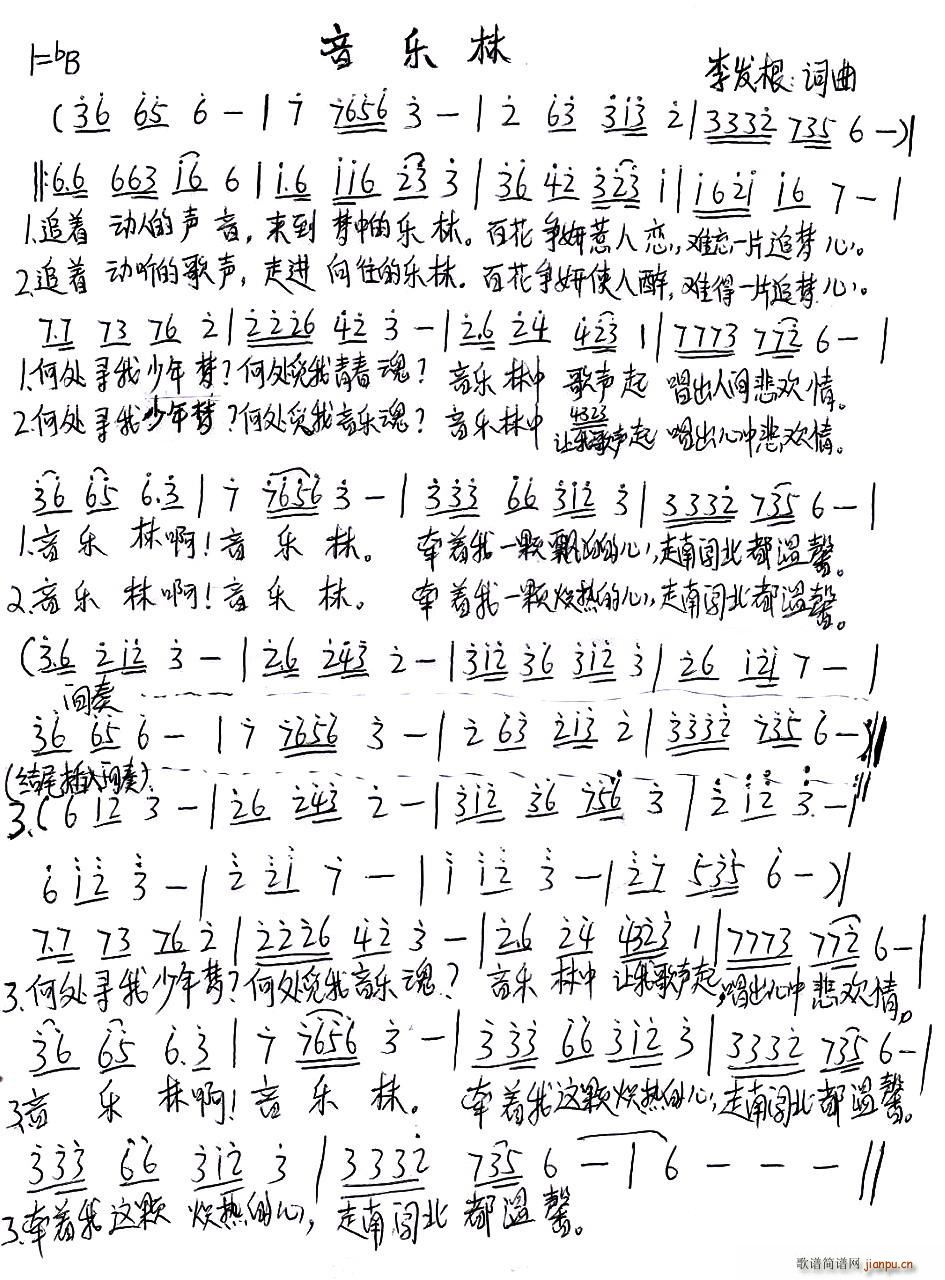 音乐林
1=bB
李发根:词曲
(36 65 6 - | 7 7656 3 - | 2 63 313 2 | 3332 735 6 -)|
‖:6.6 663 16 6 | 1.6 116 23 3 | 36 42 323 1 | 1621 16 7 - |
1.追着 动人的声音,来到 梦中的乐林。百花争妍惹人恋,难忘一片追梦心。
2.追着 动听的歌声,走进 向往的乐林。百花争妍使人醉,难得一片追梦心。
7.7 73 76 2 | 2226 42 3 - | 2.6 24 423 1 | 7773 772 6 - |
1.何处寻我少年梦?何处觅我青春魂? 音乐林中 歌声起 唱出人间悲欢情。
4323
2.何处寻我少年梦?何处觅我音乐魂? 音乐林中 让我歌声起 唱出心中悲欢情。
36 65 6.3 | 7 7656 3 - | 333 66 312 3 | 3332 735 6 - |
1.音乐林啊!音乐林。 牵着我一颗飘泊的心,走南闯北都温馨。
2.音乐林啊!音乐林。 牵着我一颗炽热的心,走南闯北都温馨。
(3.6 212 3 - | 2.6 243 2 - | 312 36 312 3 | 26 121 7 - |
间奏
36 65 6 - | 7 7656 3 - | 2 63 213 2 | 3332 735 6 - :‖
(结尾插入间奏)
3.(6 12 3 - | 26 243 2 - | 312 36 756 3 | 2 12 3 - ‖
6 12 3 - | 2 21 7 - | 1 12 3 - | 27 535 6 -)|
7.7 73 76 2 | 2226 42 3 - | 2.6 24 4323 1 | 7773 772 6 - |
3.何处寻我少年梦?何处觅我音乐魂? 音乐林中 让我歌声起,唱出心中悲欢情。
36 65 6.3 | 7 7656 3 - | 333 66 312 3 | 3332 735 6 - |
3.音乐林啊!音乐林。 牵着我这颗炽热的心,走南闯北都温馨。
333 66 312 3 | 3332 735 6 - | 6 - - - ‖
3.牵着我这颗 炽热的心,走南闯北 都温馨。
歌谱简谱网
jianpu.cn